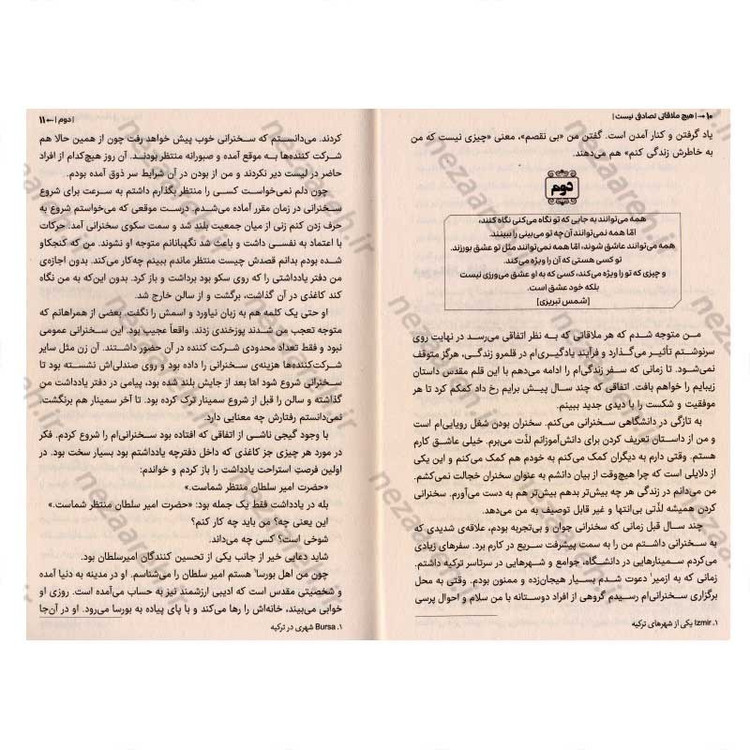 ۱۰ ← | هیچ ملاقاتی تصادفی نیست |
یاد گرفتن و کنار آمدن است. گفتن من «بی نقصم»، معنی «چیزی نیست که من
به خاطرش زندگی کنم» هم می‌دهند.
دوم
همه می‌توانند به جایی که تو نگاه می‌کنی نگاه کنند،
امّا همه نمی‌توانند آن چه تو می‌بینی را ببینند.
همه می‌توانند عاشق شوند، امّا همه نمی‌توانند مثل تو عشق بورزند.
تو کسی هستی که آن را ویژه می‌کند.
و چیزی که تو را ویژه می‌کند، کسی که به او عشق می‌ورزی نیست
بلکه خود عشق است.
[شمس تبریزی]
من متوجه شدم که هر ملاقاتی که به نظر اتفاقی می‌رسد در نهایت روی
سرنوشتم تأثیر می‌گذارد و فرآیند یادگیری‌ام در قلمرو زندگی، هرگز متوقف
نمی‌شود. تا زمانی که سفر زندگی‌ام را ادامه می‌دهم با این قلم مقدس داستان
زیبایم را خواهم یافت. اتفاقی که چند سال پیش برایم رخ داد کمکم کرد تا هر
موفقیت و شکست را با دیدی جدید ببینم.
به تازگی در دانشگاهی سخنرانی می‌کنم. سخنران بودن شغل رویایی‌ام است
و من از داستان تعریف کردن برای دانش‌آموزانم لذّت می‌برم. خیلی عاشق کارم
هستم. وقتی دارم به دیگران کمک می‌کنم به خودم هم کمک می‌کنم و این یکی
از دلایلی است که چرا هیچ‌وقت از بیان دانشم به عنوان سخنران خجالت نمی‌کشم.
من می‌دانم در زندگی هر چه بیش‌تر بدهم بیش‌تر هم به دست می‌آورم. سخنرانی
کردن همیشه لذّتی بی‌انتها و غیر قابل توصیف به من می‌دهد.
چند سال قبل زمانی که سخنرانی جوان و بی‌تجربه بودم، علاقه‌ی شدیدی که
به سخنرانی داشتم من را به سمت پیشرفت سریع در کارم برد. سفرهای زیادی
می‌کردم سمینارهایی در دانشگاه، جوامع و شهرهایی در سرتاسر ترکیه داشتم.
زمانی که به ازمیر¹ دعوت شدم بسیار هیجان‌زده و ممنون بودم. وقتی به محل
برگزاری سخنرانی‌ام رسیدم گروهی از افراد دوستانه با من سلام و احوال پرسی
۱. Izmir یکی از شهرهای ترکیه
| دوم | → ۱۱
کردند. می‌دانستم که سخنرانی خوب پیش خواهد رفت چون از همین حالا هم
شرکت کننده‌ها به موقع آمده و صبورانه منتظر بودند. آن روز هیچ‌کدام از افراد
حاضر در لیست دیر نکردند و من از بودن در آن شرایط سر ذوق آمده بودم.
چون دلم نمی‌خواست کسی را منتظر بگذارم داشتم به سرعت برای شروع
سخنرانی در زمان مقرر آماده می‌شدم. درست موقعی که می‌خواستم شروع به
حرف زدن کنم زنی از میان جمعیت بلند شد و سمت سکوی سخنرانی آمد. حرکات
با اعتماد به نفسی داشت و باعث شد نگهبانانم متوجه او نشوند. من که کنجکاو
شده بودم بدانم قصدش چیست منتظر ماندم ببینم چه‌کار می‌کند. بدون اجازه‌ی
من دفتر یادداشتی را که روی سکو بود برداشت و باز کرد. بدون این‌که به من نگاه
کند کاغذی در آن گذاشت، برگشت و از سالن خارج شد.
او حتی یک کلمه هم به زبان نیاورد و اسمش را نگفت. بعضی از همراهانم که
متوجه تعجب من شدند پوزخندی زدند. واقعاً عجیب بود. این سخنرانی عمومی
نبود و فقط تعداد محدودی شرکت کننده در آن حضور داشتند. آن زن مثل سایر
شرکت‌کننده‌ها هزینه‌ی سخنرانی را داده بود و روی صندلی‌اش نشسته بود تا
سخنرانی شروع شود اما بعد از جایش بلند شده بود، پیامی در دفتر یادداشت من
گذاشته و سالن را قبل از شروع سمینار ترک کرده بود. تا آخر سمینار هم برنگشت،
نمی‌دانستم رفتارش چه معنایی دارد.
با وجود گیجی ناشی از اتفاقی که افتاده بود سخنرانی‌ام را شروع کردم. فکر
کردن در مورد هر چیزی جز کاغذی که داخل دفترچه یادداشتم بود بسیار سخت بود. در
اولین فرصتِ استراحت یادداشت را باز کردم و خواندم:
«حضرت امیر سلطان منتظر شماست.»
بله در یادداشت فقط یک جمله بود: «حضرت امیر سلطان منتظر شماست.»
این یعنی چه؟ من باید چه کار کنم؟
شوخی است؟ کسی چه می‌داند.
شاید دعایی خیر از جانب یکی از تحسین کنندگان امیرسلطان بود.
چون من اهل بورسا¹ هستم امیر سلطان را می‌شناسم. او در مدینه به دنیا آمده
و شخصیتی مقدس است که ادیبی ارزشمند نیز به حساب می‌آمده است. روزی او
خوابی می‌بیند، خانه‌اش را رها می‌کند و با پای پیاده به بورسا می‌رود. او در آن‌جا
۱. Bursa شهری در ترکیه
nezaareh.ir